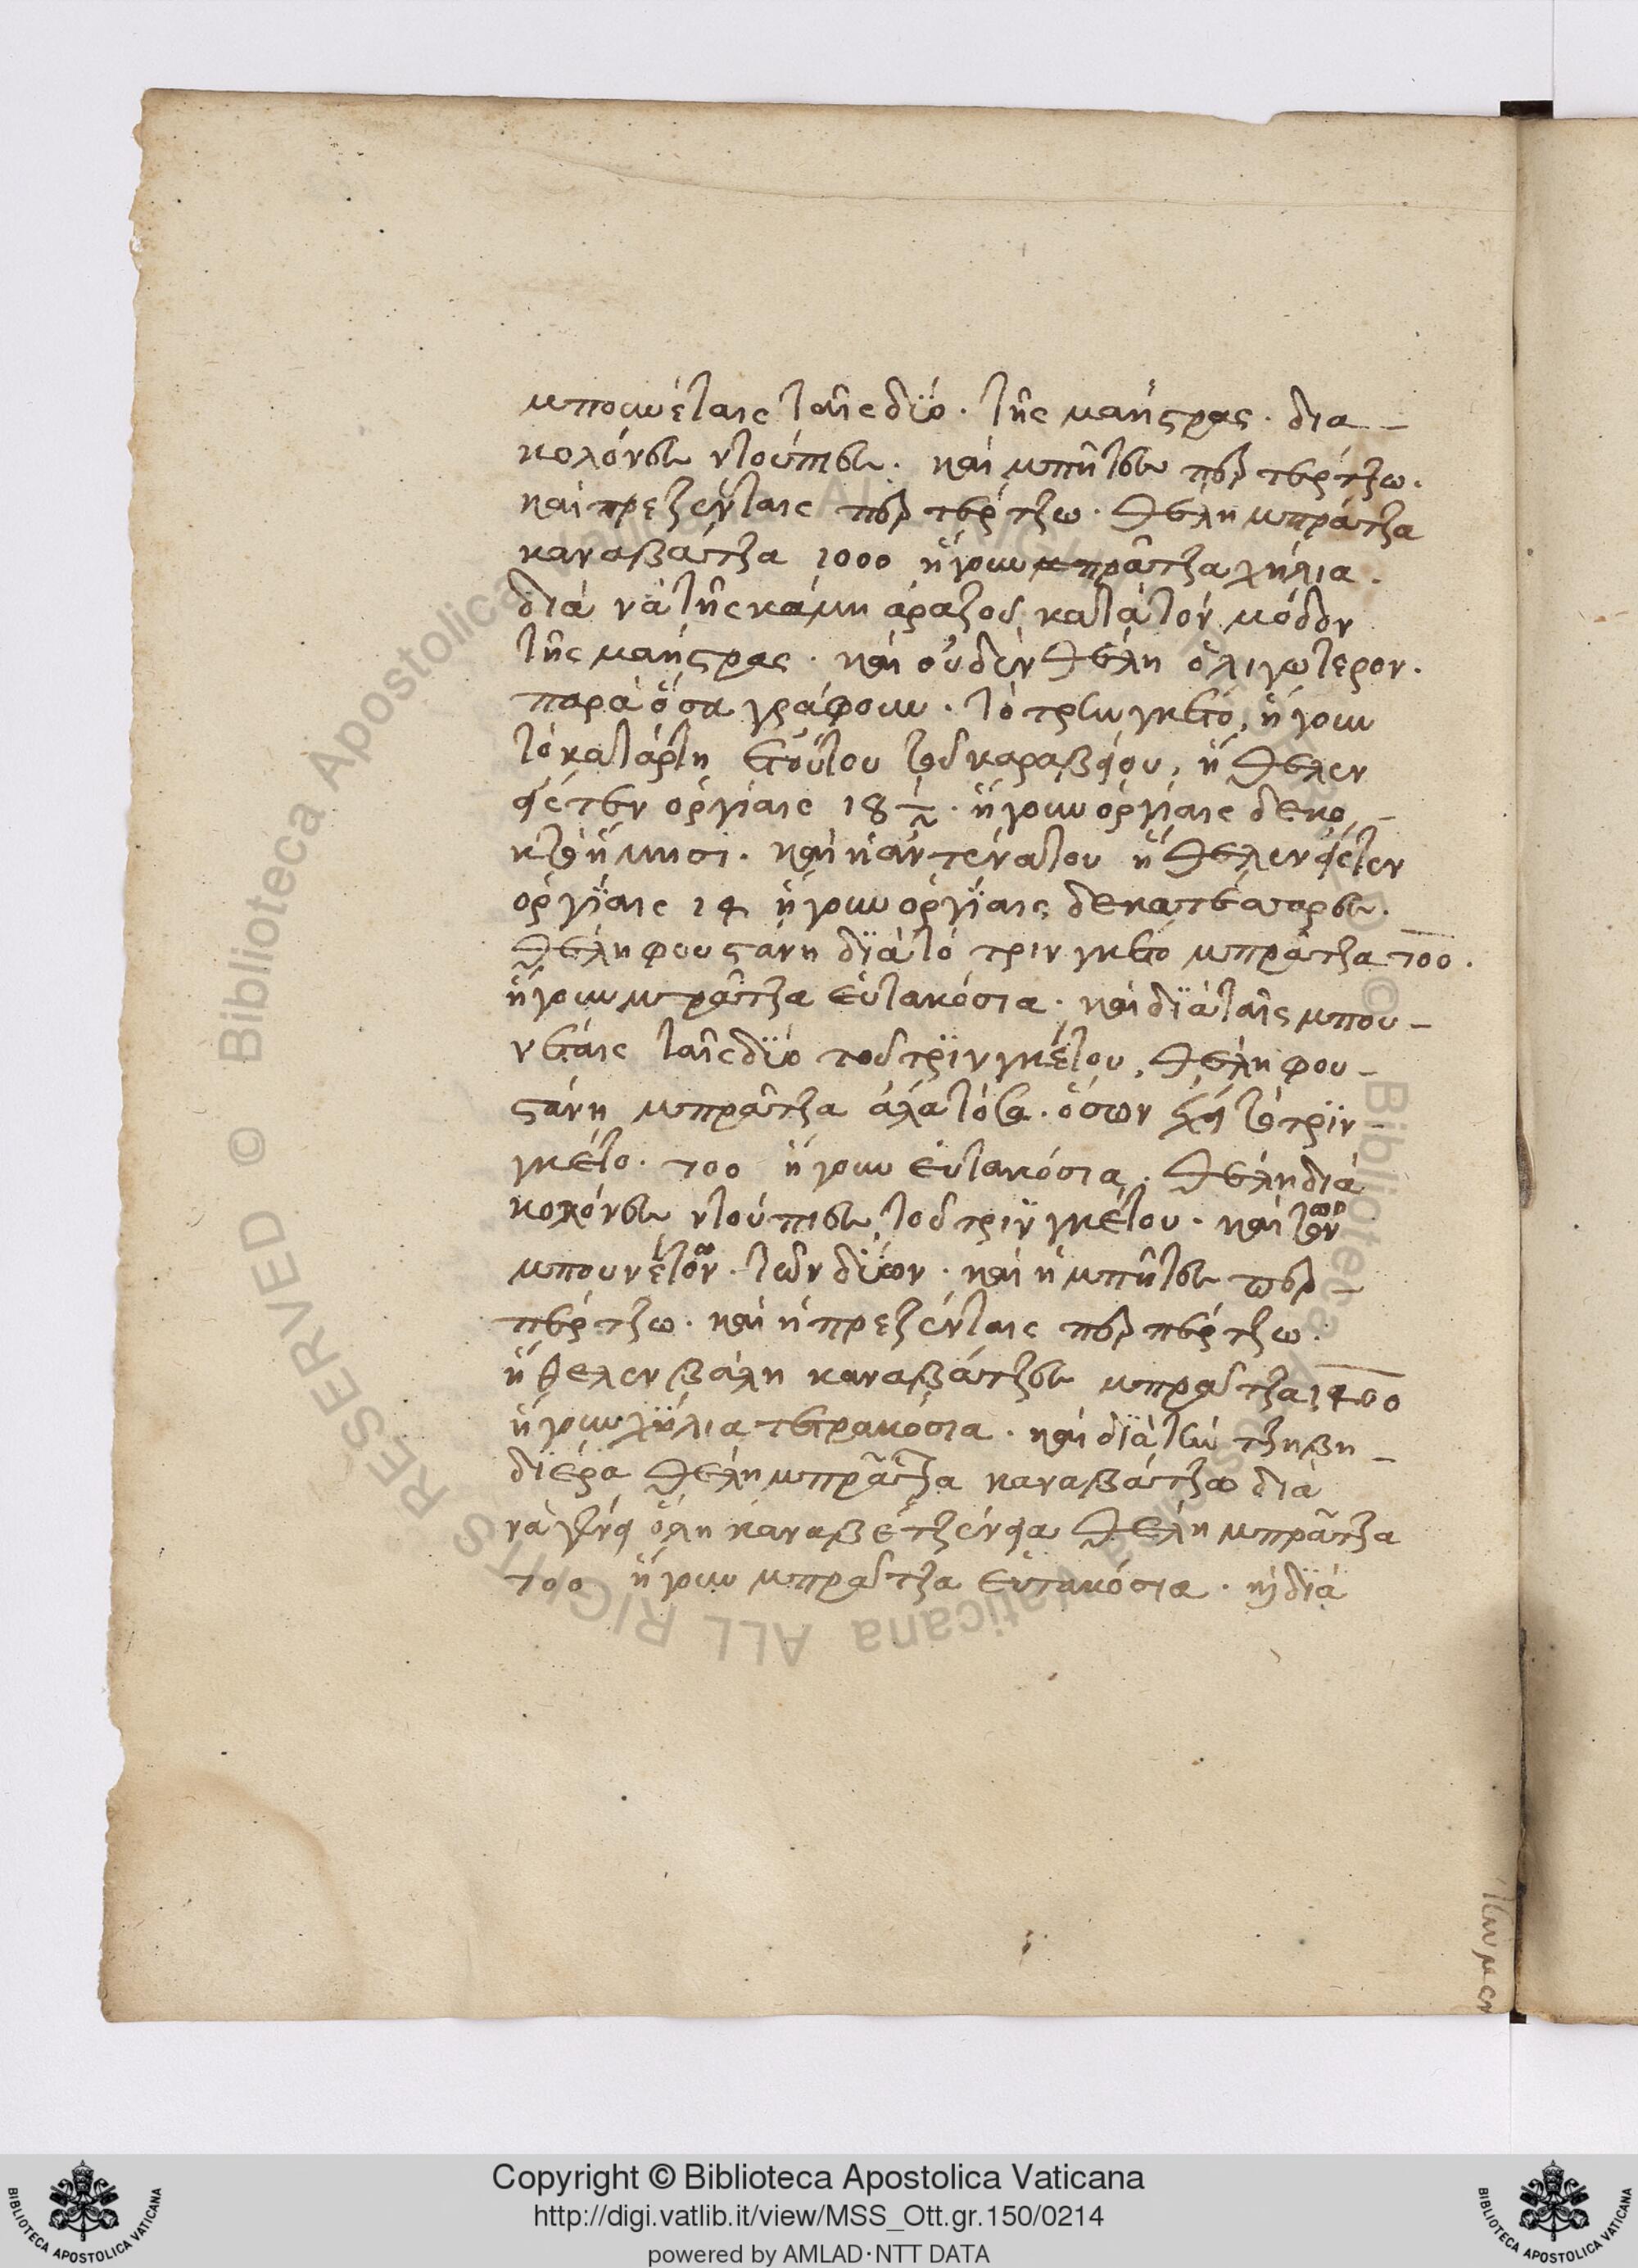 μπουνέταις ταῖς δϊό. τῆς μαήστρας. δια-
κολόνες ντούπιες. καὶ μπῆτες πὲρ τέρτζω.
καὶ πρεζένταις πὲρ τέρτζω. θέλη μπράτζα
καναβάτζα 1000 ἤγουν μπράτζα χήλια.
διὰ νὰ τῆς κάμη ἀρατζοῦ κατὰ τὸν μόδον
τῆς μαήστρας. καὶ οὐδὲν θέλη ὀλιγώτερον.
παρὰ ὅσα γράφουν. τὸ τρινγκέτο, ἤγουν
τὸ κατάρτη ἐτούτου τοῦ καραβίου, ἤθελεν
εἶσταιν ὀργίαις 18 ἤγουν ὀργίαις δεκο-
κτὸ ἥμησι. καὶ ἡ ἀντένα του ἤθελεν εἶσταιν
ὀργϊαις 14 ἤγουν ὀργϊαις δεκατέσαρες.
θέλη φουστάνη διὰ τὸ τρινγκέτο μπράτζα 700.
ἤγουν μπράτζα ἑυτακόσια. καὶ διὰ ταῖς μπου-
νέταις ταῖς δϊό τοῦ τρϊνγκέτου, θέλη φου-
στάνη μπράτζα ἀλατόσα. ὅσων ἔχη τὸ τρϊν-
γκέτο. 700 ἤγουν ἑυτακόσια. θέλη διὰ
κολόνες ντούπιες τοῦ τρινγκέτου. καὶ τῶν
μπουνέτων. τῶν δϊων. καὶ ἡ μπῆτες πὲρ-
τέρτζω. καὶ ἡ πρεζένταις πὲρ τέρτζω.
ἤθελεν βάλη καναβάτζες μπράτζα 1400
ἤγουν χϊλια τετρακόσια. καὶ διὰ τὴν τζηβη-
διέρα θέλη μπράτζα καναβάτζα διὰ
νὰ γένη ὅλη καναβετζένηα θέλη μπράτζα
700 ἤγουν μπράτζα ἑυτακόσια. κὶ διὰ
Copyright © Biblioteca Apostolica Vaticana
http://digi.vatlib.it/view/MSS_Ott.gr.150/0214
powered by AMLAD·NTT DATA